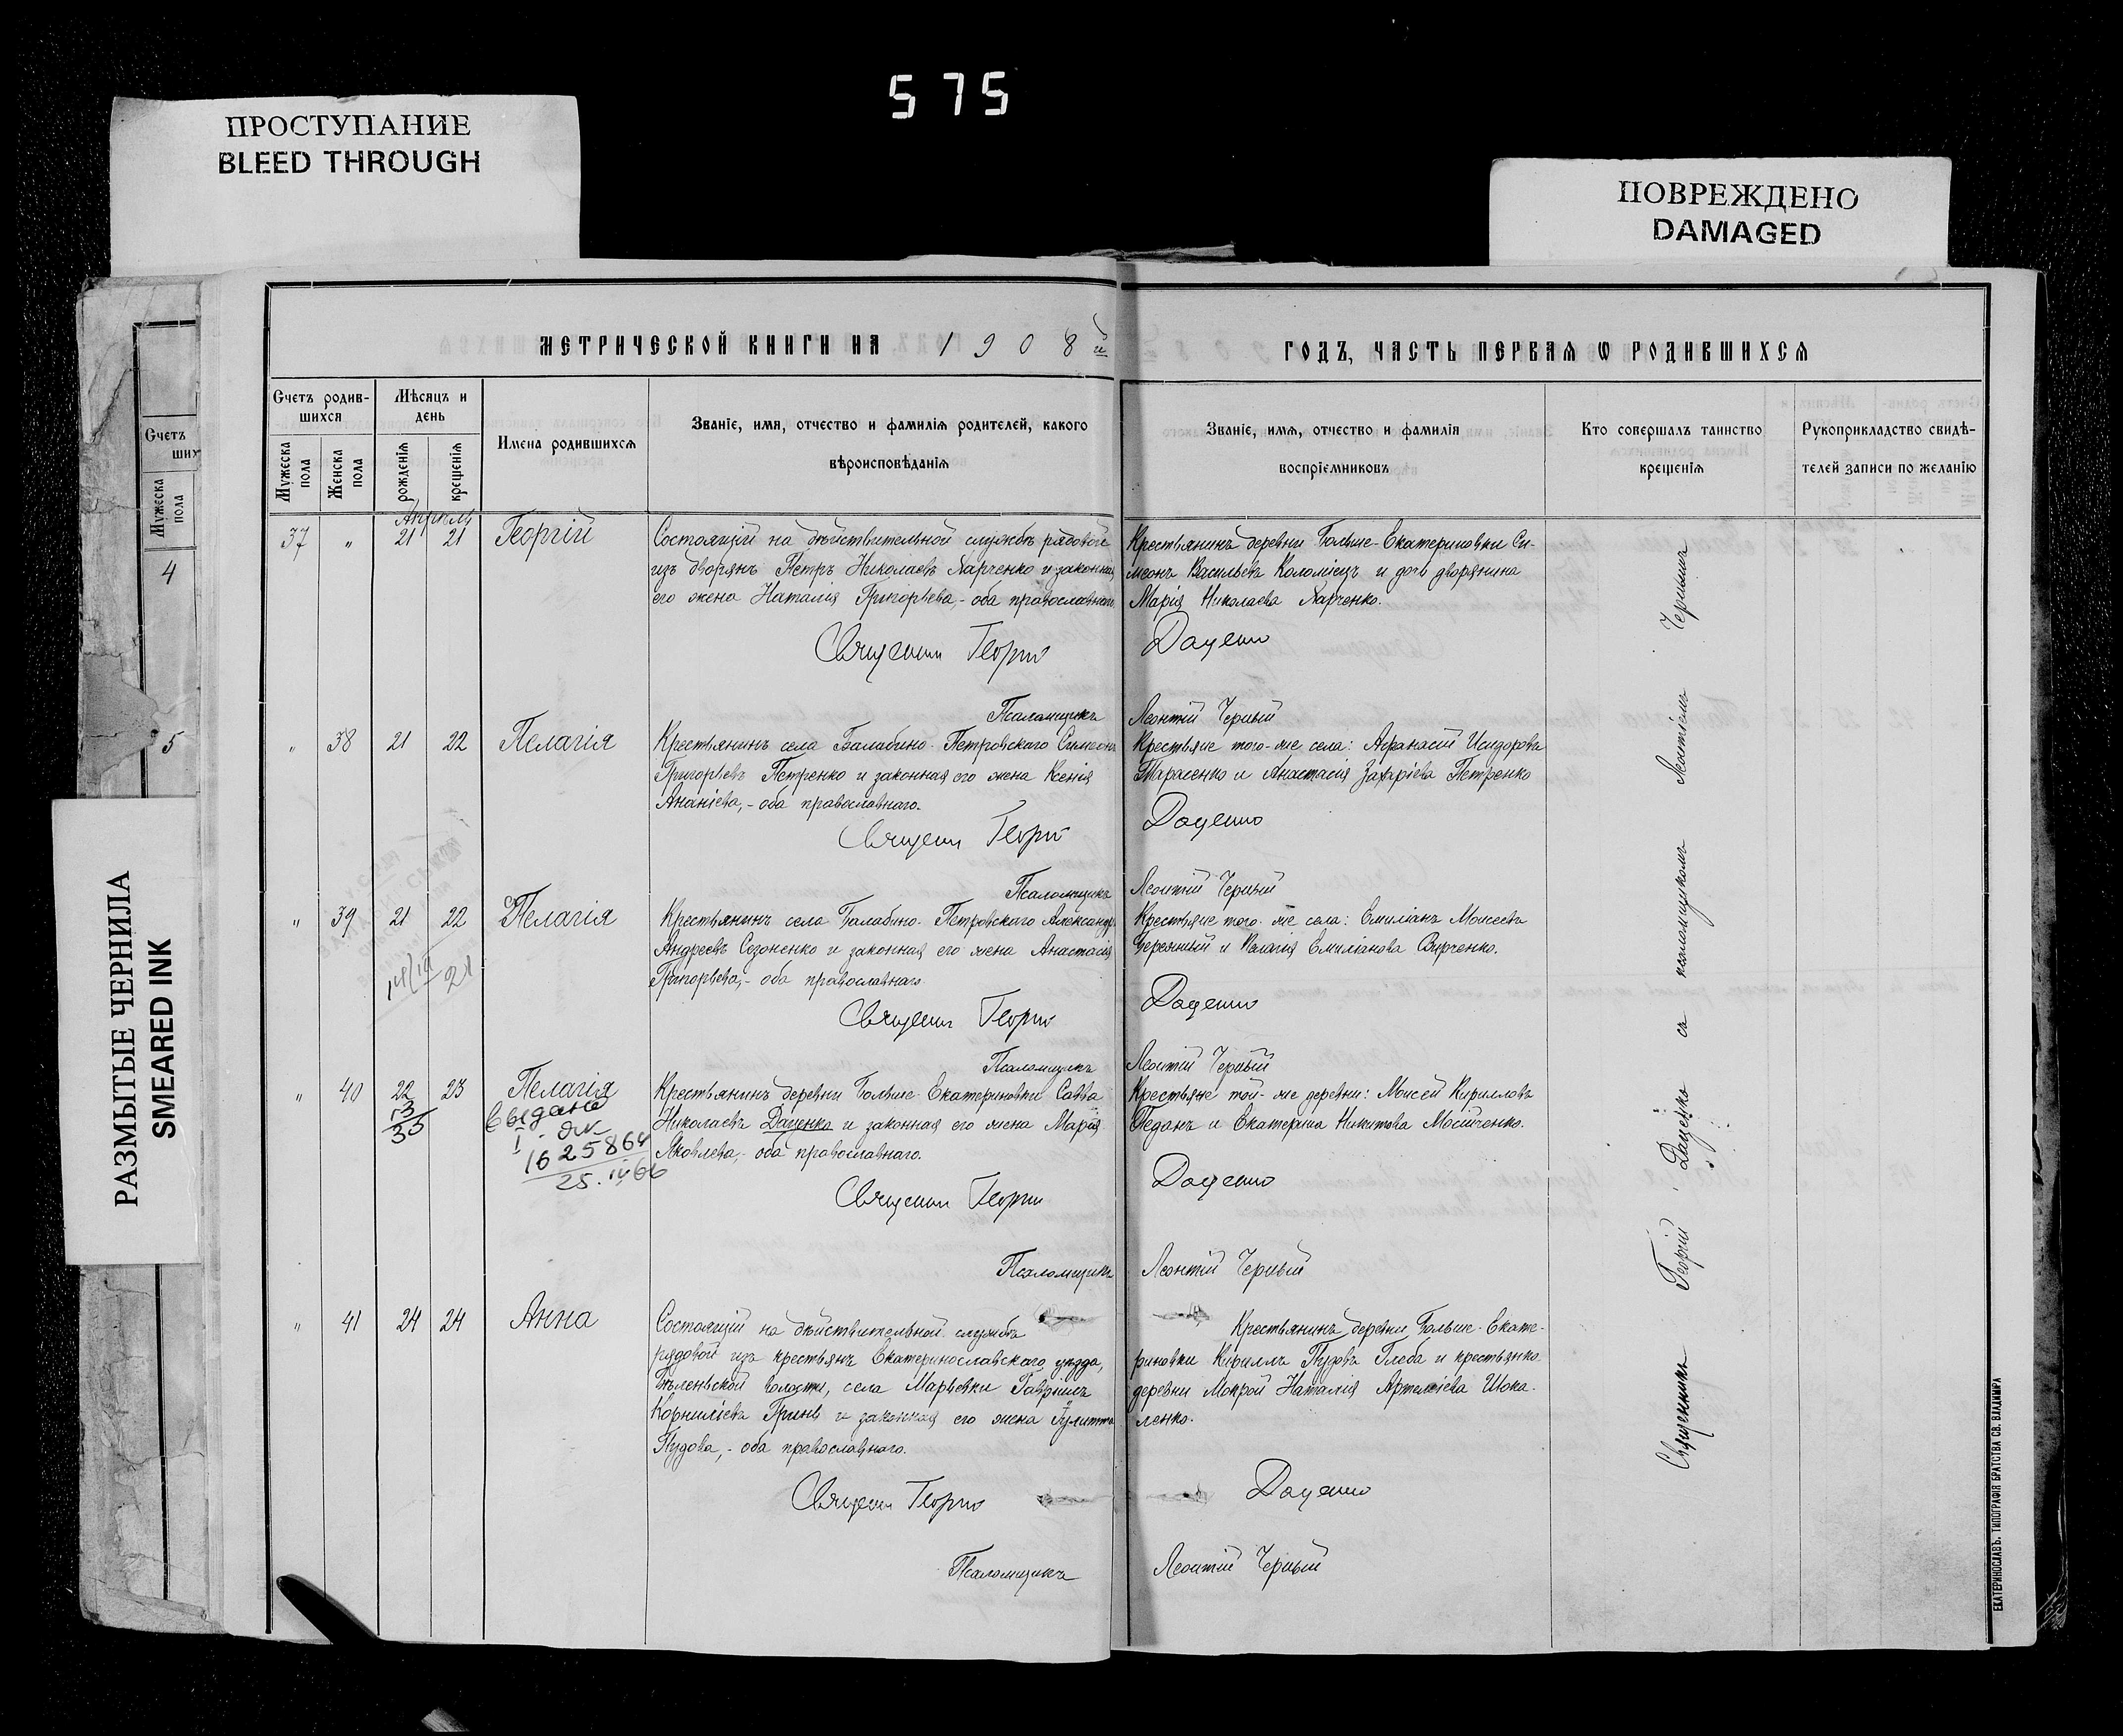 575
ПРОСТУПАНИЕ
BLEED THROUGH
ПОВРЕЖДЕНО
DAMAGED
РАЗМЫТЫЕ ЧЕРНИЛА
SMEARED INK
Счетъ
ших
Мужеска
пола
4
5
МЕТРИЧЕСКОЙ КНИГИ НА 1908й ГОДЪ, ЧАСТЬ ПЕРВАЯ Ѡ РОДИВШИХСЯ
Счетъ родив-
шихся
Мужеска
пола
Женска
пола
Мѣсяцъ и
день
рожденія
крещенія
Имена родившихся
Званіе, имя, отчество и фамилія родителей, какого
вѣроисповѣданія
Званіе, имя, отчество и фамилія
воспріемниковъ
Кто совершалъ таинство
крещенія
Рукоприкладство свидѣ-
телей записи по желанію
Апрѣль
37 " 21 21 Георгій
Состоящій на дѣйствительной службѣ рядовой
изъ дворянъ Петръ Николаевъ Харченко и законная
его жена Наталія Григорьева,- оба православнаго
Крестьянинъ деревни Больше-Екатериновки Си-
меонъ Васильевъ Коломіецъ и дочь дворянина
Марія Николаева Харченко.
Священни Георгій Даценко
Псаломщикъ Леонтій Черный
" 38 21 22 Пелагія
Крестьянинъ села Балабино-Петровскаго Симеонъ
Григорьевъ Петренко и законная его жена Ксенія
Ананіева,- оба православнаго.
Крестьяне того-же села: Афанасій Исидоровъ
Тарасенко и Анастасія Захаріева Петренко
Священ Георгій Даценко
Псаломщикъ Леонтій Черный
" 39 21 22 Пелагія
21
Крестьянинъ села Балабино-Петровскаго Александръ
Андреевъ Созоненко и законная его жена Анастасія
Григорьева,- оба православнаго
Крестьяне того-же села: Емиліанъ Моисеевъ
и Пелагія Емиліанова
Священ Георгій Даценко
Псаломщикъ Леонтій Черный
" 40 22 23 Пелагія
53
35
1625864
25.IV66
Крестьянинъ деревни Больше-Екатериновки Савва
Николаевъ Даценко и законная его жена Марія
Яковлева,- оба православнаго.
Крестьяне той-же деревни: Моисей Кирилловъ
Педанъ и Екатерина Никитова Мосійченко.
Священни Георгій Даценко
Псаломщикъ Леонтій Черный
" 41 24 24 Анна
Состоящій на дѣйствительной службѣ
рядовой изъ крестьянъ Екатеринославскаго уѣзда,
Бѣленьской волости, села Марьевки Гавріилъ
Корниліевъ Гринь и законная его жена Іулитта
Пудова,- оба православнаго.
Крестьянинъ деревни Больше-Екате-
риновки Кириллъ Пудовъ Глеба и крестьянка
деревни Мокрой Наталія Артеміева Шока-
ленко.
Священ Георгій Даценко
Псаломщикъ Леонтій Черный
Священникъ Георгій Даценко съ псаломщикомъ Леонтіемъ Чернымъ
ЕКАТЕРИНОСЛАВЪ. ТИПОГРАФІЯ БРАТСТВА СВ. ВЛАДИМІРА